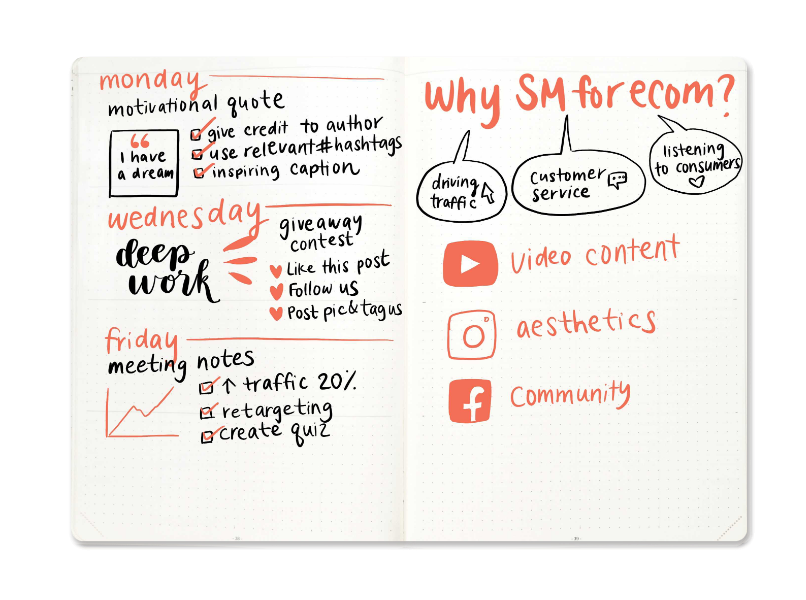 monday
motivational quote
“
I have
a dream
give credit to author
use relevant #hashtags
inspiring caption
wednesday
deep
work
giveaway
contest
Like this post
Follow us
Post pic & tag us
friday
meeting notes
↑ traffic 20%
retargeting
create quiz
Why SM for ecom?
driving
traffic
customer
service
listening
to consumers
video content
aesthetics
f
Community